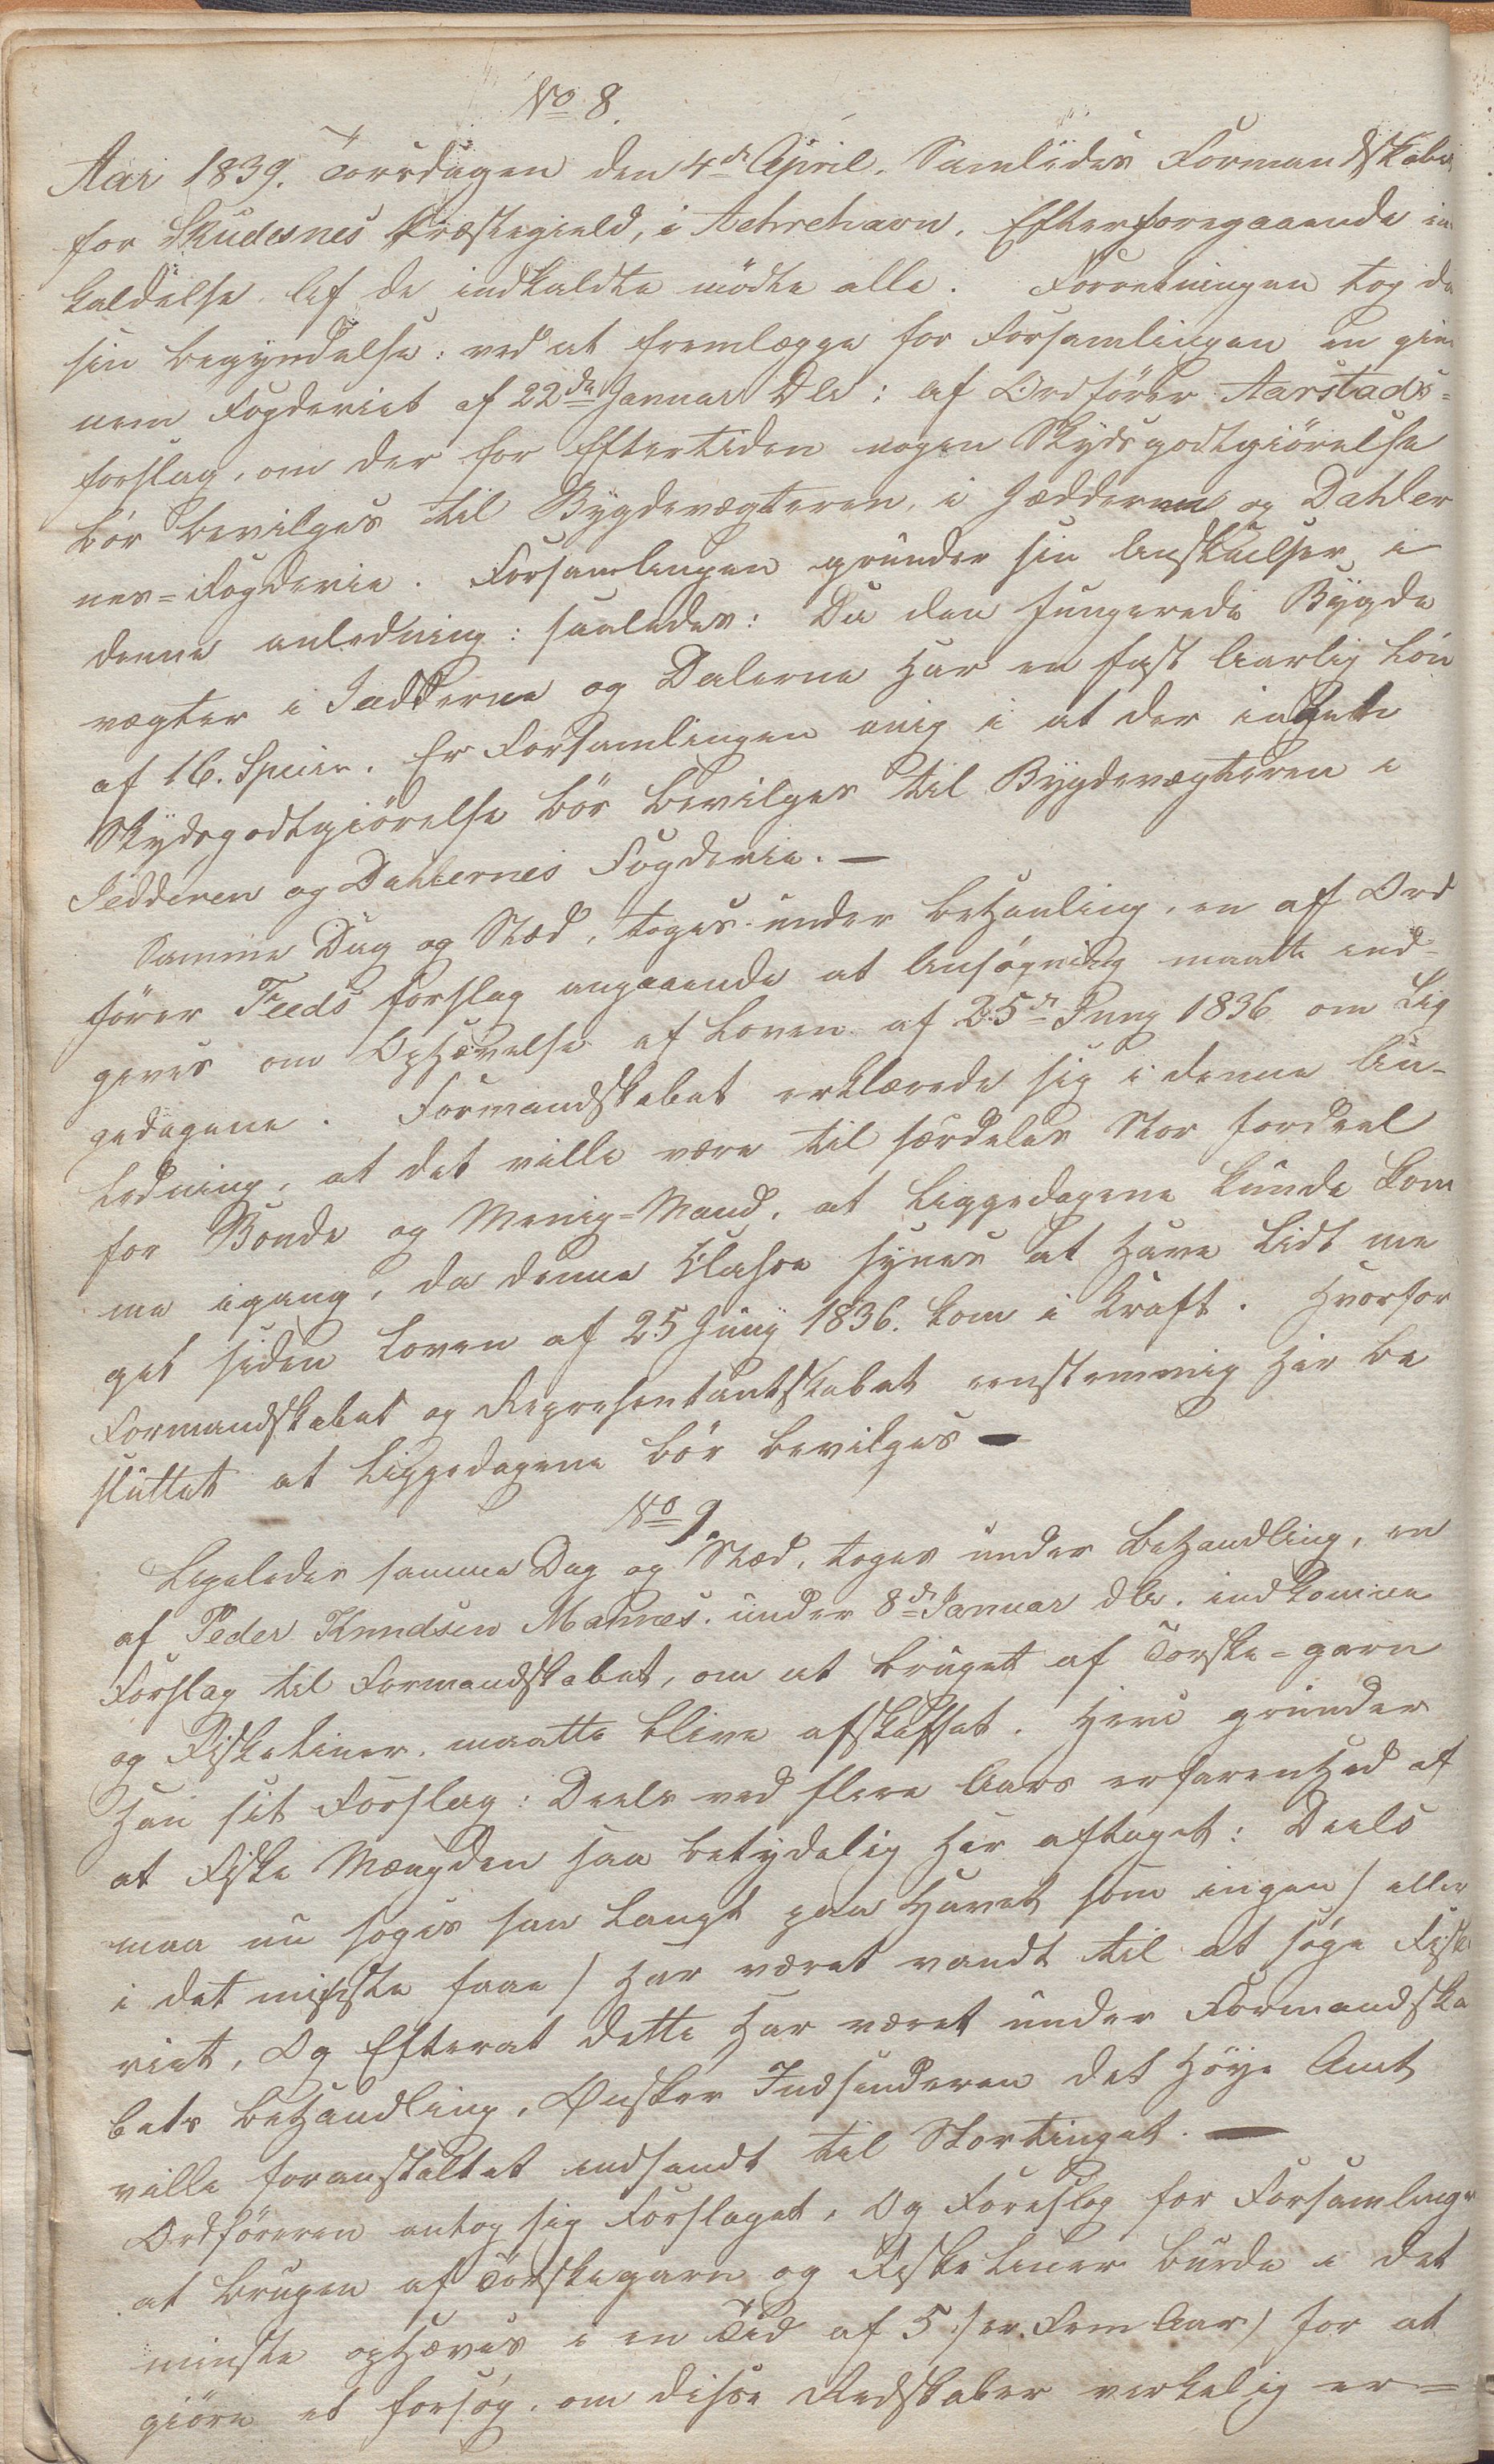 No 8.
Aar 1839. Torsdagen den 4de April. Samledes Formandskabe
for Skudesnes Præstegield, i Aehrehavn. Efterforegaaende in
kaldelse. Af de indkaldte mödte alle. Forretningen tog da
sin begyndelse: ved at fremlægge for Forsamlingen en gien
nem Fogderiet af 22de Januar D.A: af Ordförer Aarstads=
forslag, om der for Eftertiden nogen Skydsgodtgiörelse
bör bevilges til Bygdevægteren, i Jædderen og Dahler
nes=Fogderie. Forsamlingen grunder sin Anskuelser i
denne anledning: saaledes: Da den fungerede Bygde
vægter i Jædderne og Dalerne har en fast Aarlig Lön
af 16. Specier. Er Forsamlingen enig i at der ingen
Skydsgodtgiörelse bör bevilges til Bygdevægteren i
Jedderen og Dahlernes Fogderie. —
Samme Dag og Stæd, toges under behanling, en af Ord
förer Feeds forslag angaaende at Ansögning maatte ind-
gives om Ophævelse af Loven af 25de Juny 1836 om Lig
gedagene. Formandskabet erklærede sig i denne An-
ledning, at det ville være til særdeles Stor fordeel
for Bonde og Menig=Mand, at Liggedagene kunde kom
me igang, da denne Klasse synes at have Lidt me
get siden Loven af 25 Juny 1836. kom i kraft. Hvorfor
Formandskabet og Representantskabet eenstemmig har be
sluttet at Liggedagene bör bevilges —
No 9.
Ligeledes samme Dag og Stæd, toges under Behandling, en
af Peder Knudsen Mannes. under 8de Januar d.A. indkomne
Forslag til Formandskabet, om at bruget af Torske=garn
og Fiskeliner. maatte blive afskaffet. Hvori grunder
han sit Forslag: Deels ved flere Aars erfarenhed af
at Fiske Mængden saa betydelig har aftaget: Deels
maa nu soges saa langt paa Havet som ingen / eller
i det mindste faae / har været vandt til at söge Fiske
riet, Og Efterat dette har været under Formandska
bets behandling, Ønsker Indsenderen det höye Amt
ville foranstaltet indsendt til Stortinget. —
Ordföreren antog sig Forslaget, Og Foreslog for Forsamlinge
at brugen af Torskegarn og Fiske Liner burde i det
minste ophæves i en Tid af 5 / er. Fem Aar / for at
giöre et forsög. om disse Redskaber virkelig er=